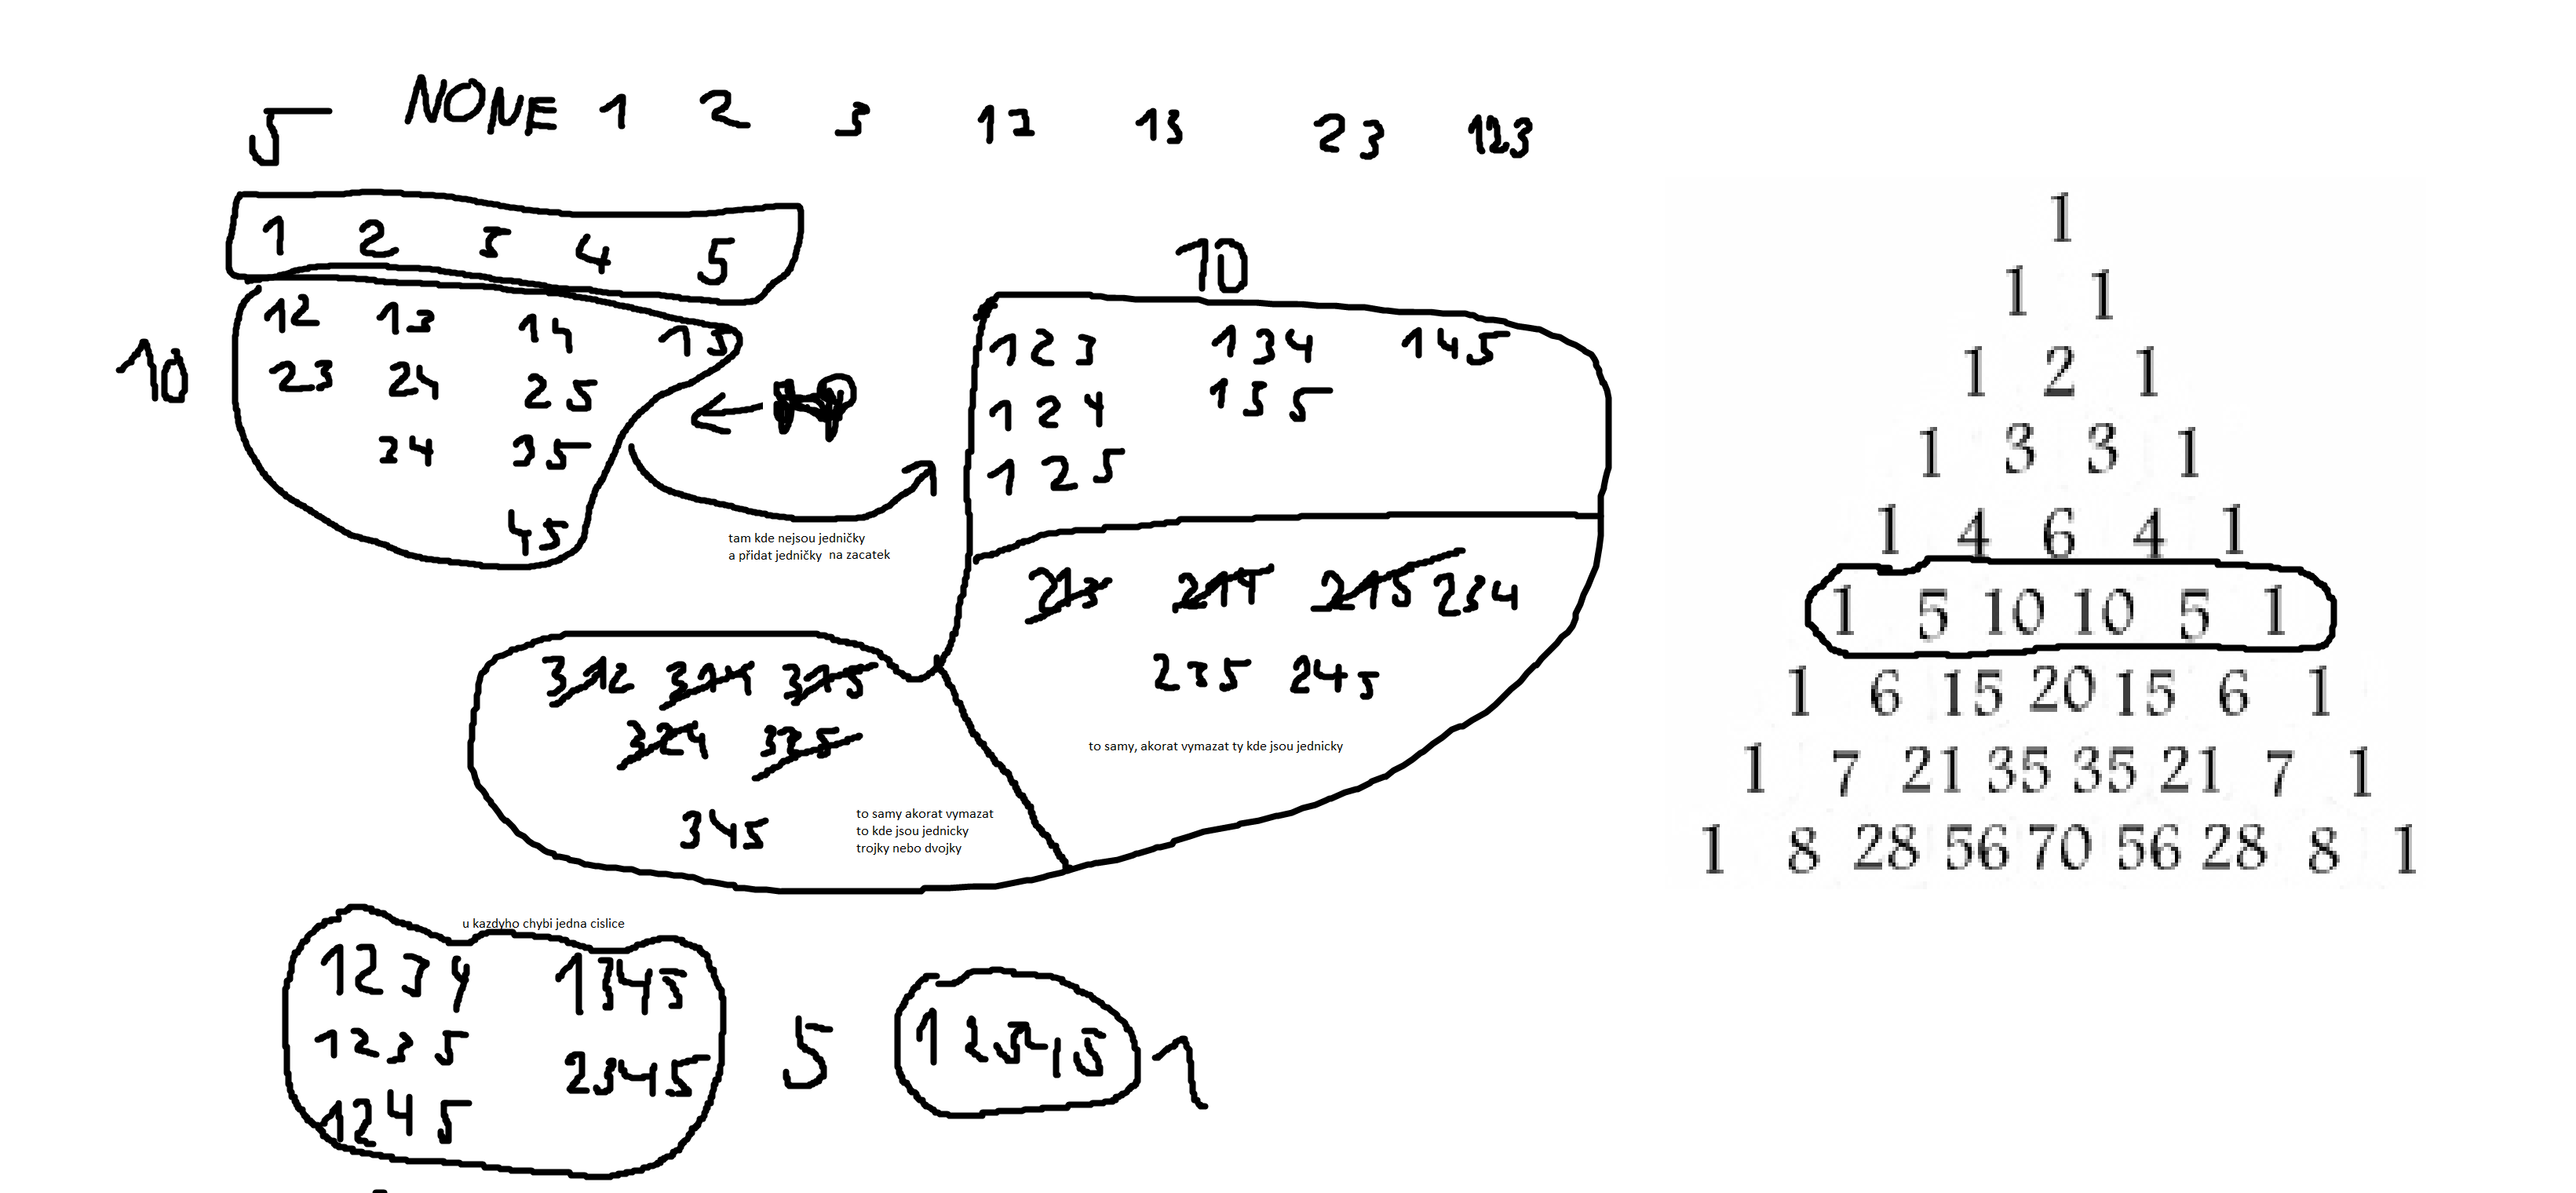 5 NONE 1 2 3 12 13 23 123
1 2 3 4 5
10
12 13 14 15
23 24 25
34 35
45
tam kde nejsou jedničky
a přidat jedničky na zacatek
10
123 134 145
124 135
125
213 214 215 234
235 245
to samy, akorat vymazat ty kde jsou jednicky
312 314 315
324 325
345
to samy akorat vymazat
to kde jsou jednicky
trojky nebo dvojky
u kazdyho chybi jedna cislice
1234 1345
1235 2345
1245
5
12345 1
1
1 1
1 2 1
1 3 3 1
1 4 6 4 1
1 5 10 10 5 1
1 6 15 20 15 6 1
1 7 21 35 35 21 7 1
1 8 28 56 70 56 28 8 1